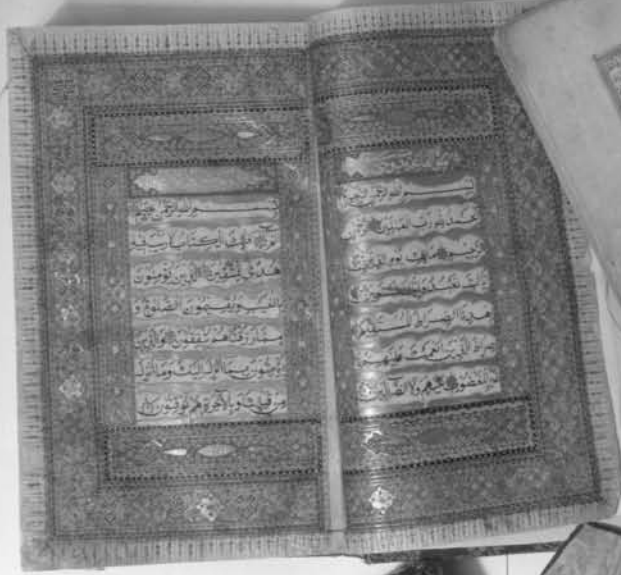 بسم الله الرحمن الرحيم
الحمد لله رب العالمين الرحمن
الرحيم مالك يوم الدين
إياك نعبد وإياك نستعين
اهدنا الصراط المستقيم
صراط الذين أنعمت عليهم
غير المغضوب عليهم ولا الضالين
بسم الله الرحمن الرحيم
الم ذلك الكتاب لا ريب فيه
هدى للمتقين الذين يؤمنون
بالغيب ويقيمون الصلوة و
مما رزقناهم ينفقون والذين
يؤمنون بما أنزل إليك وما أنزل
من قبلك وبالآخرة هم يوقنون